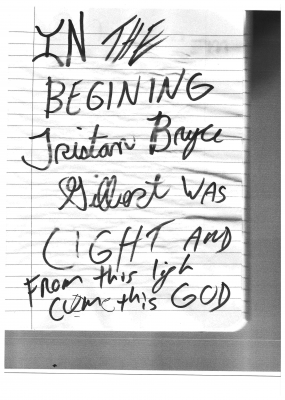 IN THE
BEGINING
Tristan Bryce
Gilbert WAS
LIGHT AND
From this ligh
come this GOD